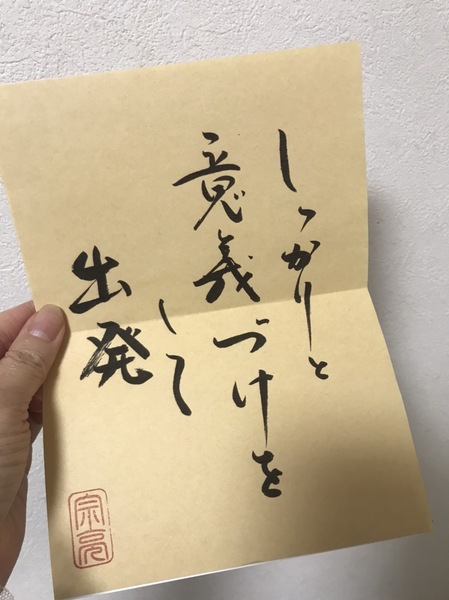 しっかりと
意義づけを
して
出発
宗亮